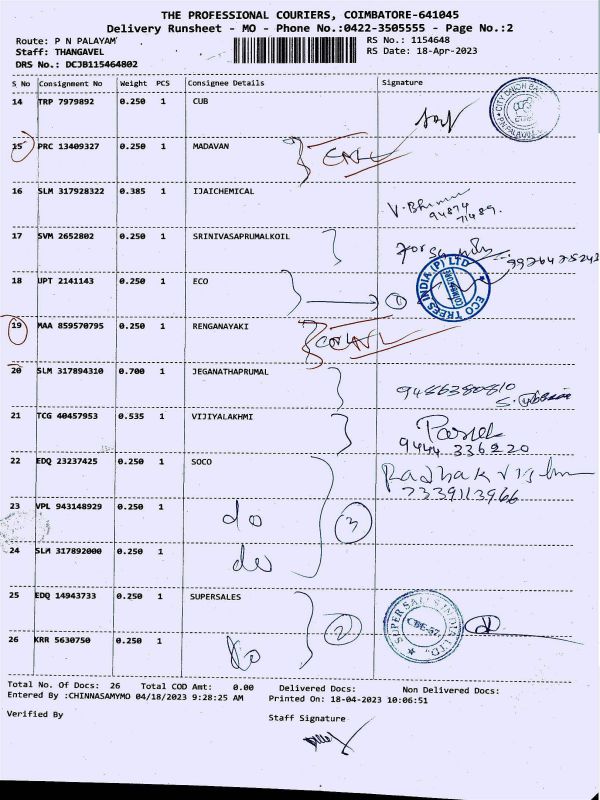 THE PROFESSIONAL COURIERS, COIMBATORE-641045
Delivery Runsheet - MO - Phone No.:0422-3505555 - Page No.:2
Route: P N PALAYAM RS No.: 1154648
Staff: THANGAVEL RS Date: 18-Apr-2023
DRS No.: DCJB115464802
S No Consignment No Weight PCS Consignee Details Signature
14 TRP 7979892 0.250 1 CUB
15 PRC 13409327 0.250 1 MADAVAN
16 SLM 317928322 0.385 1 IJAICHEMICAL
V. 94874
71489.
17 SVM 2652802 0.250 1 SRINIVASAPRUMALKOIL
for
18 UPT 2141143 0.250 1 ECO 1
ECO TREES INDIA (P) LTD
19 MAA 859570795 0.250 1 RENGANAYAKI
20 SLM 317894310 0.700 1 JEGANATHAPRUMAL
9486380810
21 TCG 40457953 0.535 1 VIJIYALAKHMI
9444 336220
22 EDQ 23237425 0.250 1 SOCO
7339113966
23 VPL 943148929 0.250 1 do 3
24 SLM 317892000 0.250 1 do
25 EDQ 14943733 0.250 1 SUPERSALES 2
SUPER SALES INDIA LTD.
26 KRR 5630750 0.250 1 do
Total No. Of Docs: 26 Total COD Amt: 0.00 Delivered Docs: Non Delivered Docs:
Entered By :CHINNASAMYMO 04/18/2023 9:28:25 AM Printed On: 18-04-2023 10:06:51
Verified By Staff Signature